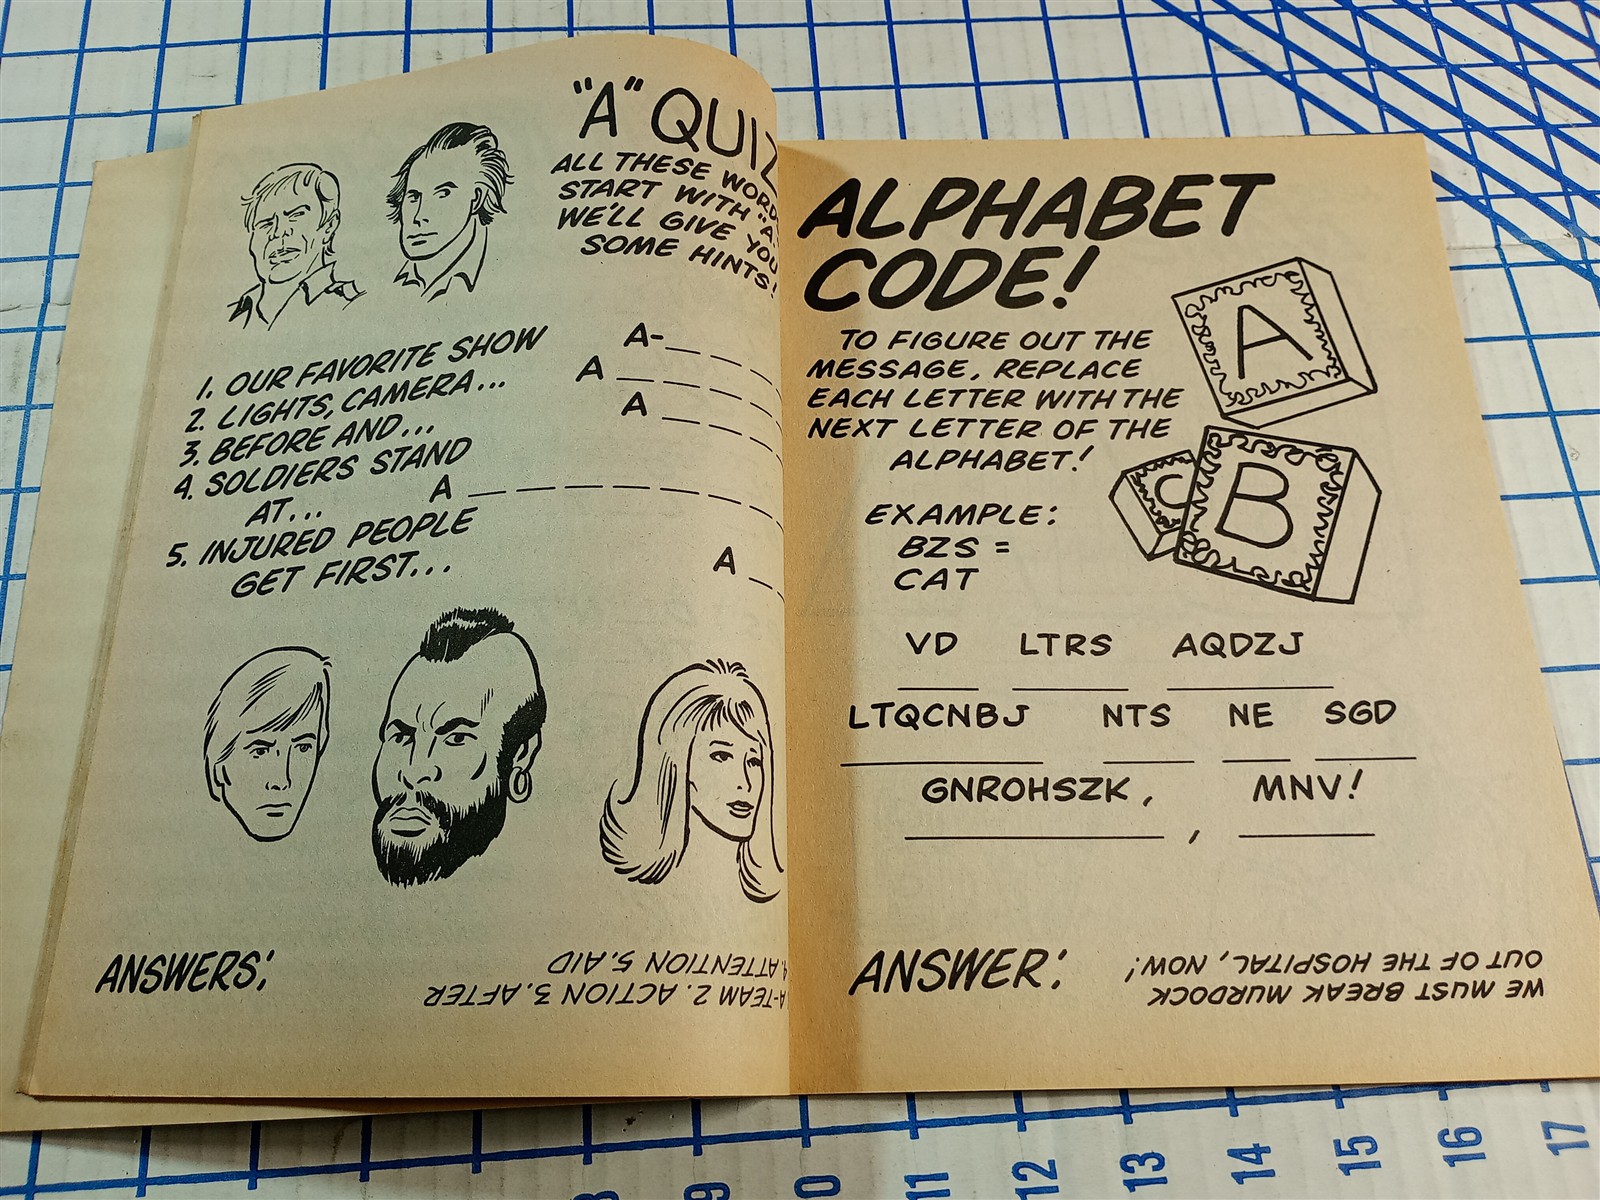 "A" QUIZ
ALL THESE WORD
START WITH "A.
WE'LL GIVE YOU
SOME HINTS!
1. OUR FAVORITE SHOW A-_ _ _ _
2. LIGHTS, CAMERA... A _ _ _ _ _
3. BEFORE AND... A _ _ _ _
4. SOLDIERS STAND
AT... A _ _ _ _ _ _ _ _
5. INJURED PEOPLE
GET FIRST... A _ _
ANSWERS:
A-TEAM 2. ACTION 3. AFTER
4. ATTENTION 5. AID
ALPHABET
CODE!
TO FIGURE OUT THE
MESSAGE, REPLACE
EACH LETTER WITH THE
NEXT LETTER OF THE
ALPHABET!
A
B
C
EXAMPLE:
BZS =
CAT
VD LTRS AQDZJ
LTQCNBJ NTS NE SGD
GNROHSZK, MNV!
,
ANSWER:
WE MUST BREAK MURDOCK
OUT OF THE HOSPITAL, NOW!
8
9
0
11
12
13
14
15
16
17